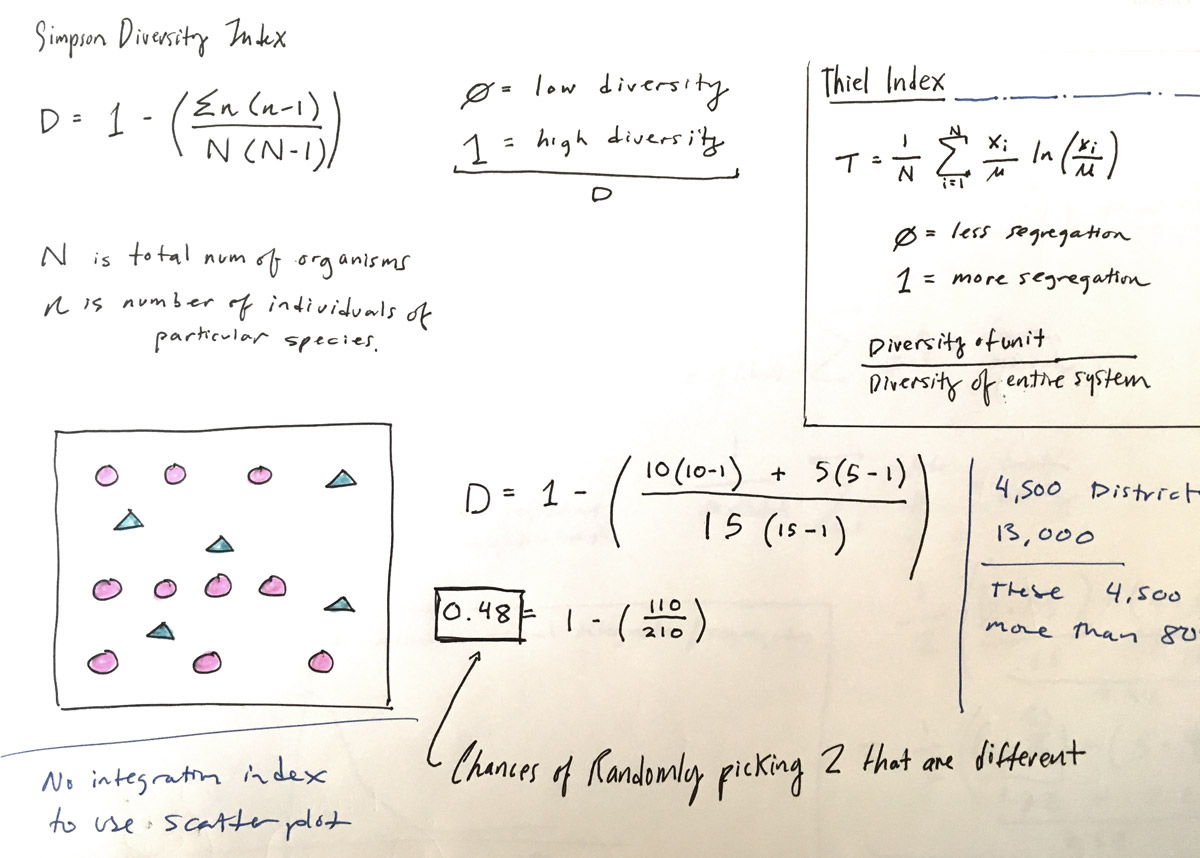 Simpson Diversity Index
D = 1 - (Σn(n-1) / N(N-1))
Ø = low diversity
1 = high diversity
D
N is total num of organisms
n is number of individuals of
particular species.
Thiel Index
T = 1/N Σ N i=1 xi/μ ln(xi/μ)
Ø = less segregation
1 = more segregation
Diversity of unit
Diversity of entire system
D = 1 - (10(10-1) + 5(5-1) / 15(15-1))
0.48 = 1 - (110/210)
Chances of Randomly picking 2 that are different
4,500 District
13,000
These 4,500
more than 80
No integration index
to use scatterplot